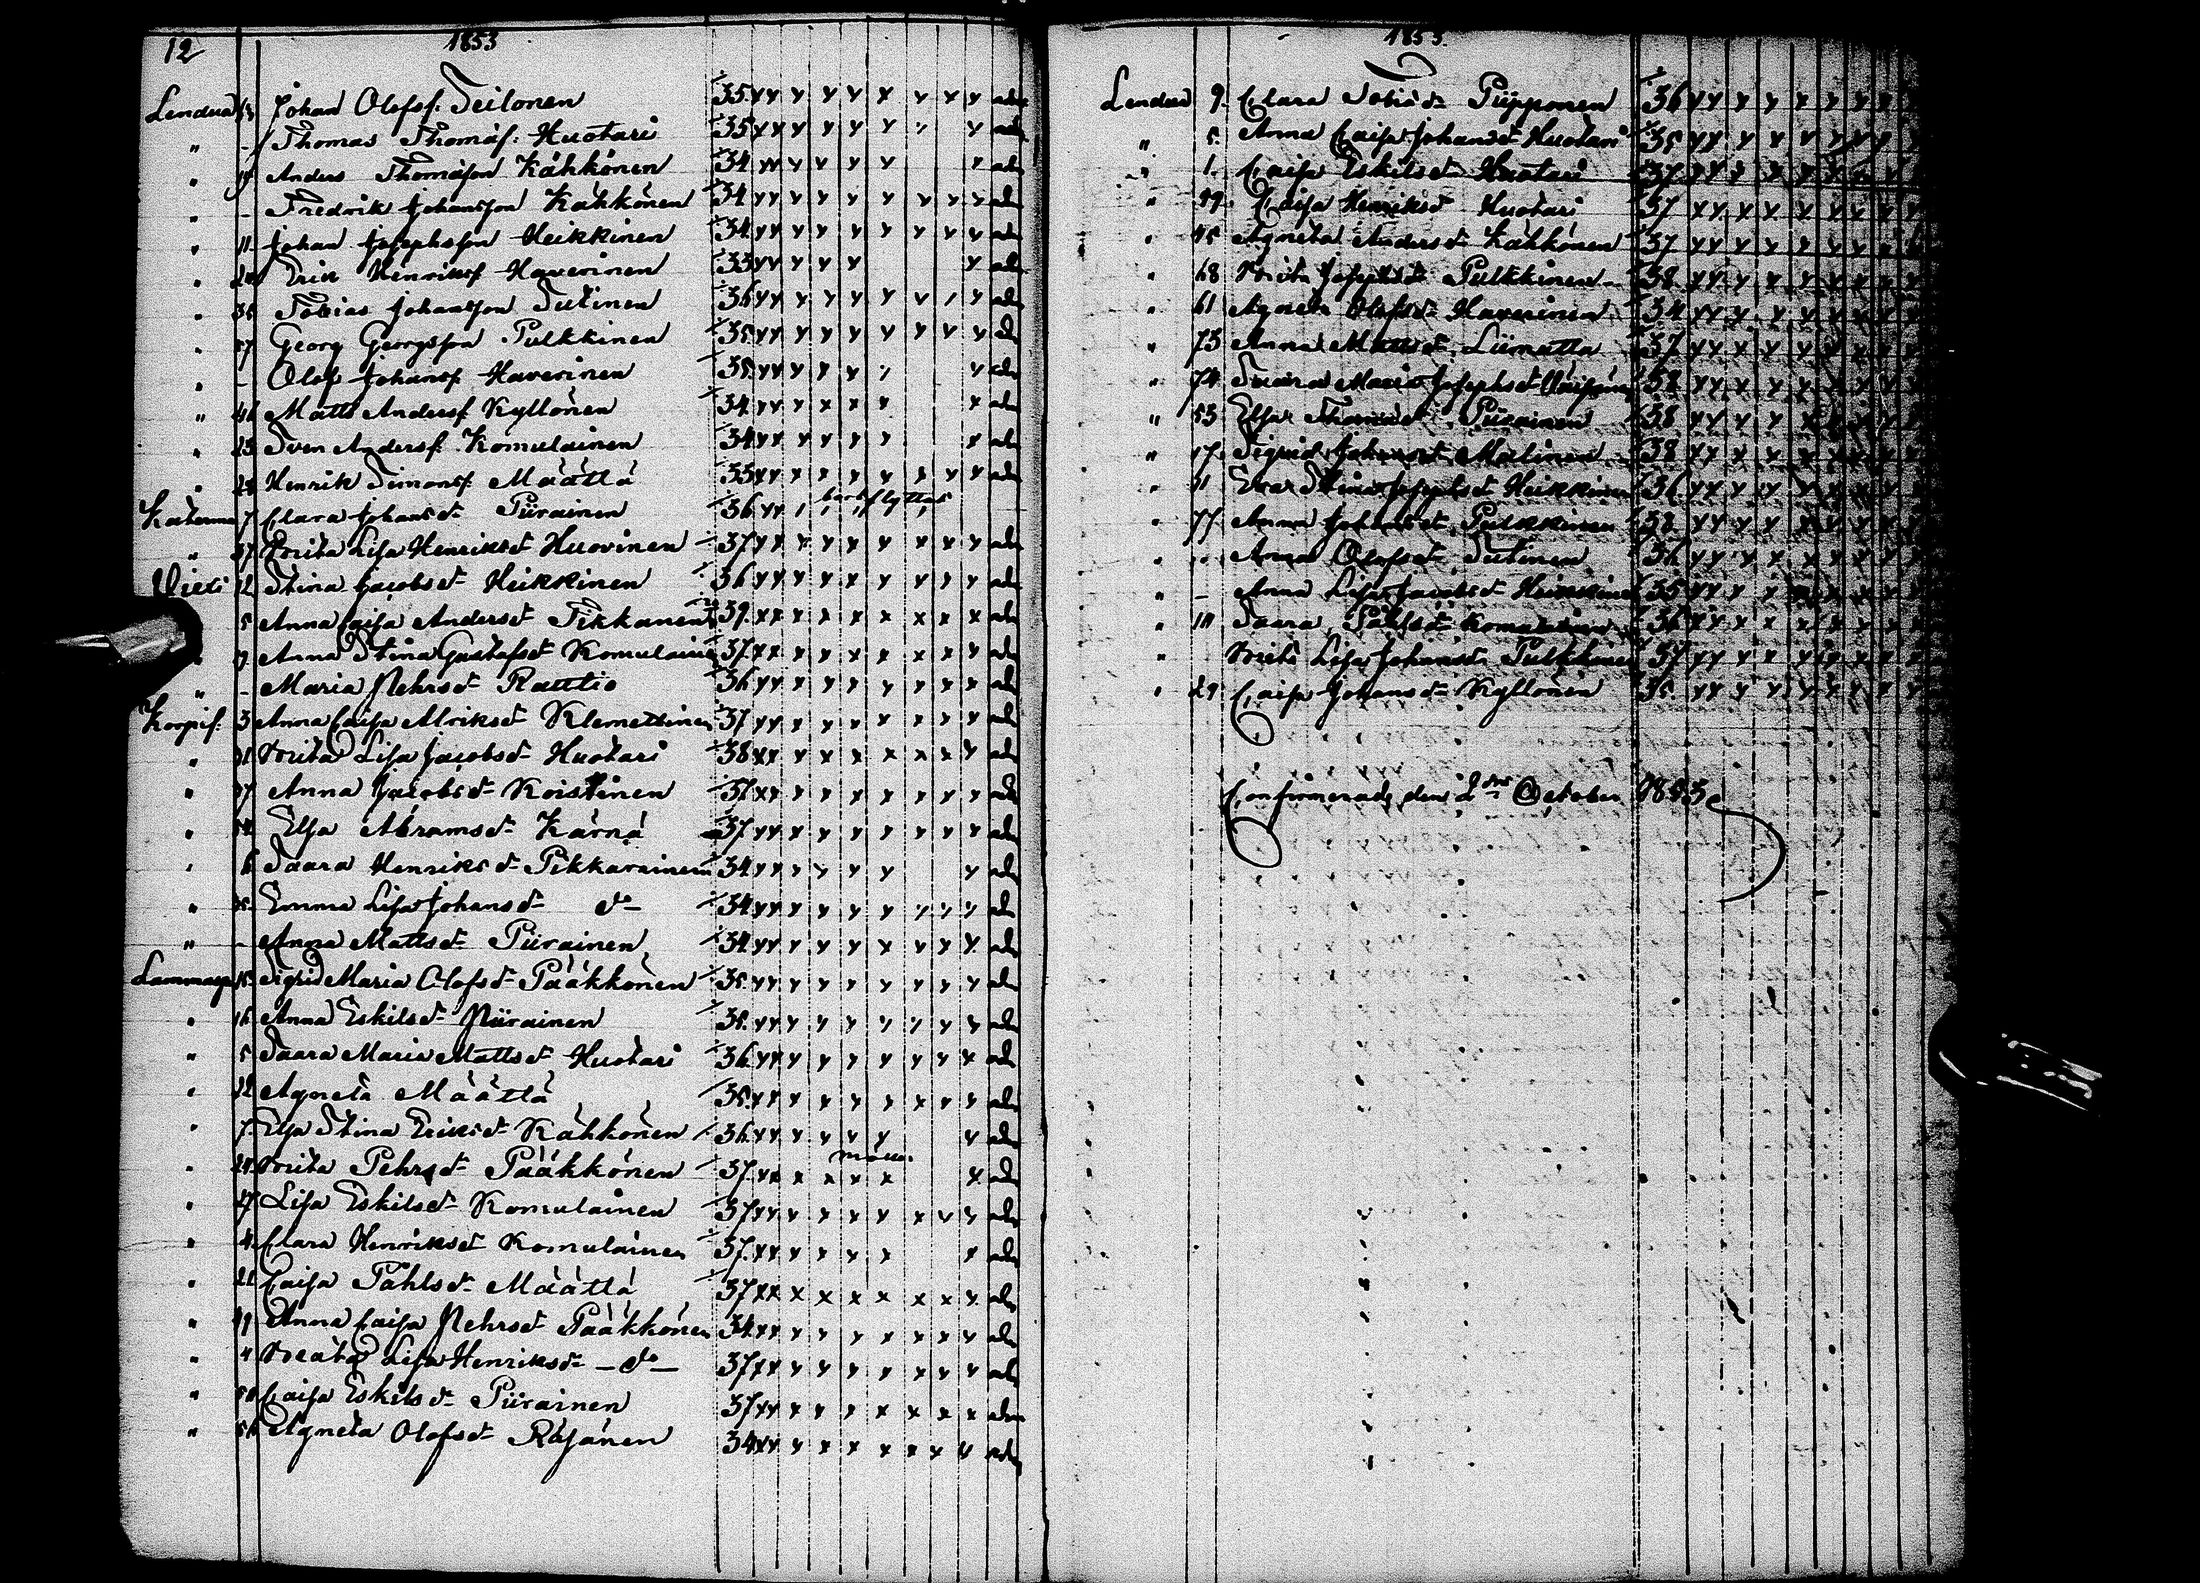 12 1853
Lendua 13 Johan Olofsf. Seilonen 35 x x x x x x x x x adm
" - Thomas Thomaf: Huotari 35 x x x x x x x x adm
" 19 Anders Thomasson Kähkönen 34 x x x x x x x adm
" - Fredrik Johansson Kähkönen 34 x x x x x x x x x adm
" 11 Johan Josephsson Heikkinen 34 x x x x x x x x x adm
" 20 Eric Henriksf Haverinen 33 x x x x x x adm
" 35 Tobias Johansson Tutinen 36 x x x x x x x x x adm
" 57 Georg Georgsson Pulkkinen 35 x x x x x x x x x adm
" - Olof Johansf. Haverinen 35 x x x x x x x adm
" 46 Matts Andersf Kyllönen 34 x x x x x x x adm
" 23 Sven Andersf. Komulainen 34 x x x x x x x adm
" 28 Henrik Simonsf. Määttä 35 x x x x x x x x x adm
Katerma 7 Clara Johansd:r Piirainen 36 x x bortflyttat
" 31 Brita Lisa Henriksd:r Huovinen 37 x x x x x x x x x adm
Vieki 2 Stina Jacobsd:r Heikkinen 36 x x x x x x x x x adm
5 Anna Caisa Andersd:r Tikkanen 39 x x x x x x x x x adm
" 9 Anna Stina Gustafsd:r Komulainen 37 x x x x x x x x x adm
" - Maria Pehrsd:r Rautio 36 x x x x x x x x x adm
Korpif. 3 Anna Caisa Alriksd:r Klemettinen 37 x x x x x x x x x adm
" 31 Brita Lisa Jacobsd:r Huotari 38 x x x x x x x x x adm
" 37 Anna Jacobsd:r Koistinen 37 x x x x x x x x x adm
" 52 Elsa Abramsd:r Kärnä 37 x x x x x x x x x adm
" 6 Saara Henriksd:r Pikkarainen 34 x x x x x x x adm
" 25 Emma Lisa Johansd:r d:o 34 x x x x x x x x x adm
" - Anna Mattsd:r Piirainen 34 x x x x x x x x x adm
Lammasp 15 Sigrid Maria Olofsd:r Pääkkönen 35 x x x x x x x x x adm
" 16 Anna Eskilsd:r Piirainen 35 x x x x x x x x x adm
" 5 Saara Maria Mattsd:r Huotari 36 x x x x x x x x x adm
" 22 Agneta Määttä 35 x x x x x x x x x adm
" 7 Elsa Stina Eriksd:r Kähkönen 36 x x x x x x x adm
" 24 Brita Pehrsd:r Pääkkönen 37 x x x x x x x adm
" 27 Lisa Eskilsd:r Komulainen 37 x x x x x x x x x adm
" 4 Clara Henriksd:r Komulainen 37 x x x x x x x adm
" 22 Caisa Påhlsd:r Määttä 37 x x x x x x x x x adm
" 19 Anna Caisa Pehrsd:r Pääkkönen 34 x x x x x x x x x adm
" 4 Beata Lisa Henriksd:r - d:o - 37 x x x x x x x x x adm
" 50 Caisa Eskilsd:r Piirainen 37 x x x x x x x x x adm
" 56 Agneta Olofsd:r Räsänen 34 x x x x x x x x x adm
1853.
Lendua 9 Clara Tobiæd:r Piipponen 36 x x x x x x x x x
" 5 Anna Caisa Johansd:r Huotari 35 x x x x x x x x x
" 1 Caisa Eskilsd:r Huotari 37 x x x x x x x x x
" 39 Caisa Henriksd:r Huotari 37 x x x x x x x x x
" 45 Agneta Andersd:r Kähkönen 37 x x x x x x x x x
" 68 Brita Josephsd:r Pulkkinen 38 x x x x x x x x x
" 61 Agneta Olofsd:r Haverinen 34 x x x x x x x x x
" 73 Anna Mattsd:r Liimatta 37 x x x x x x x x x
" 74 Saara Maria Josephsd:r Väisänen 38 x x x x x x x x x
" 53 Elsa Thomæd:r Piirainen 38 x x x x x x x x x
" 17 Sigrid Johansd:r Malinen 38 x x x x x x x x x
" 11 Eva Stina Josephsd:r Heikkinen 36 x x x x x x x x x
" 77 Anna Johansd:r Pulkkinen 38 x x x x x x x x x
" " Anna Olofsd:r Tutinen 36 x x x x x x x x x
" - Anna Lisa Jacobsd:r Heikkinen 35 x x x x x x x x x
" 10 Saara Påhlsd:r Komulainen 36 x x x x x x x x x
" Brita Lisa Johansd:r Pulkkinen 37 x x x x x x x x x
" 29 Caisa Johansd:r Kyllönen 35 x x x x x x x x x
Confirmerade den 2:dra October 1853.